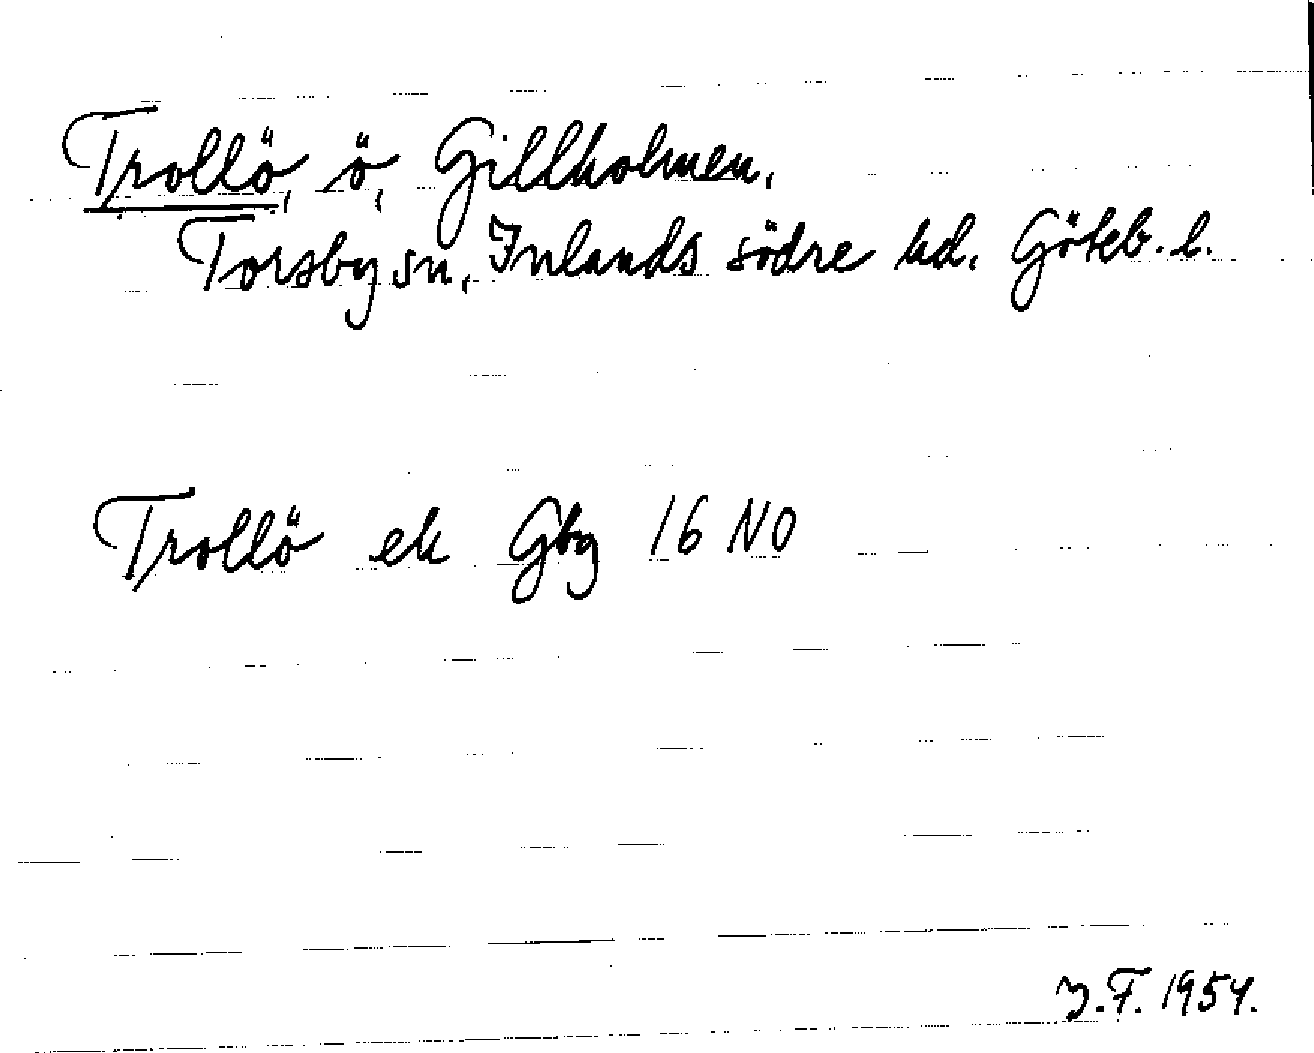 Trollö, ö, Gillholmen,
Torsby sn, Inlands södre hd, Göteb. l.
Trollö ek Gbg 16 NO
J.F. 1954.